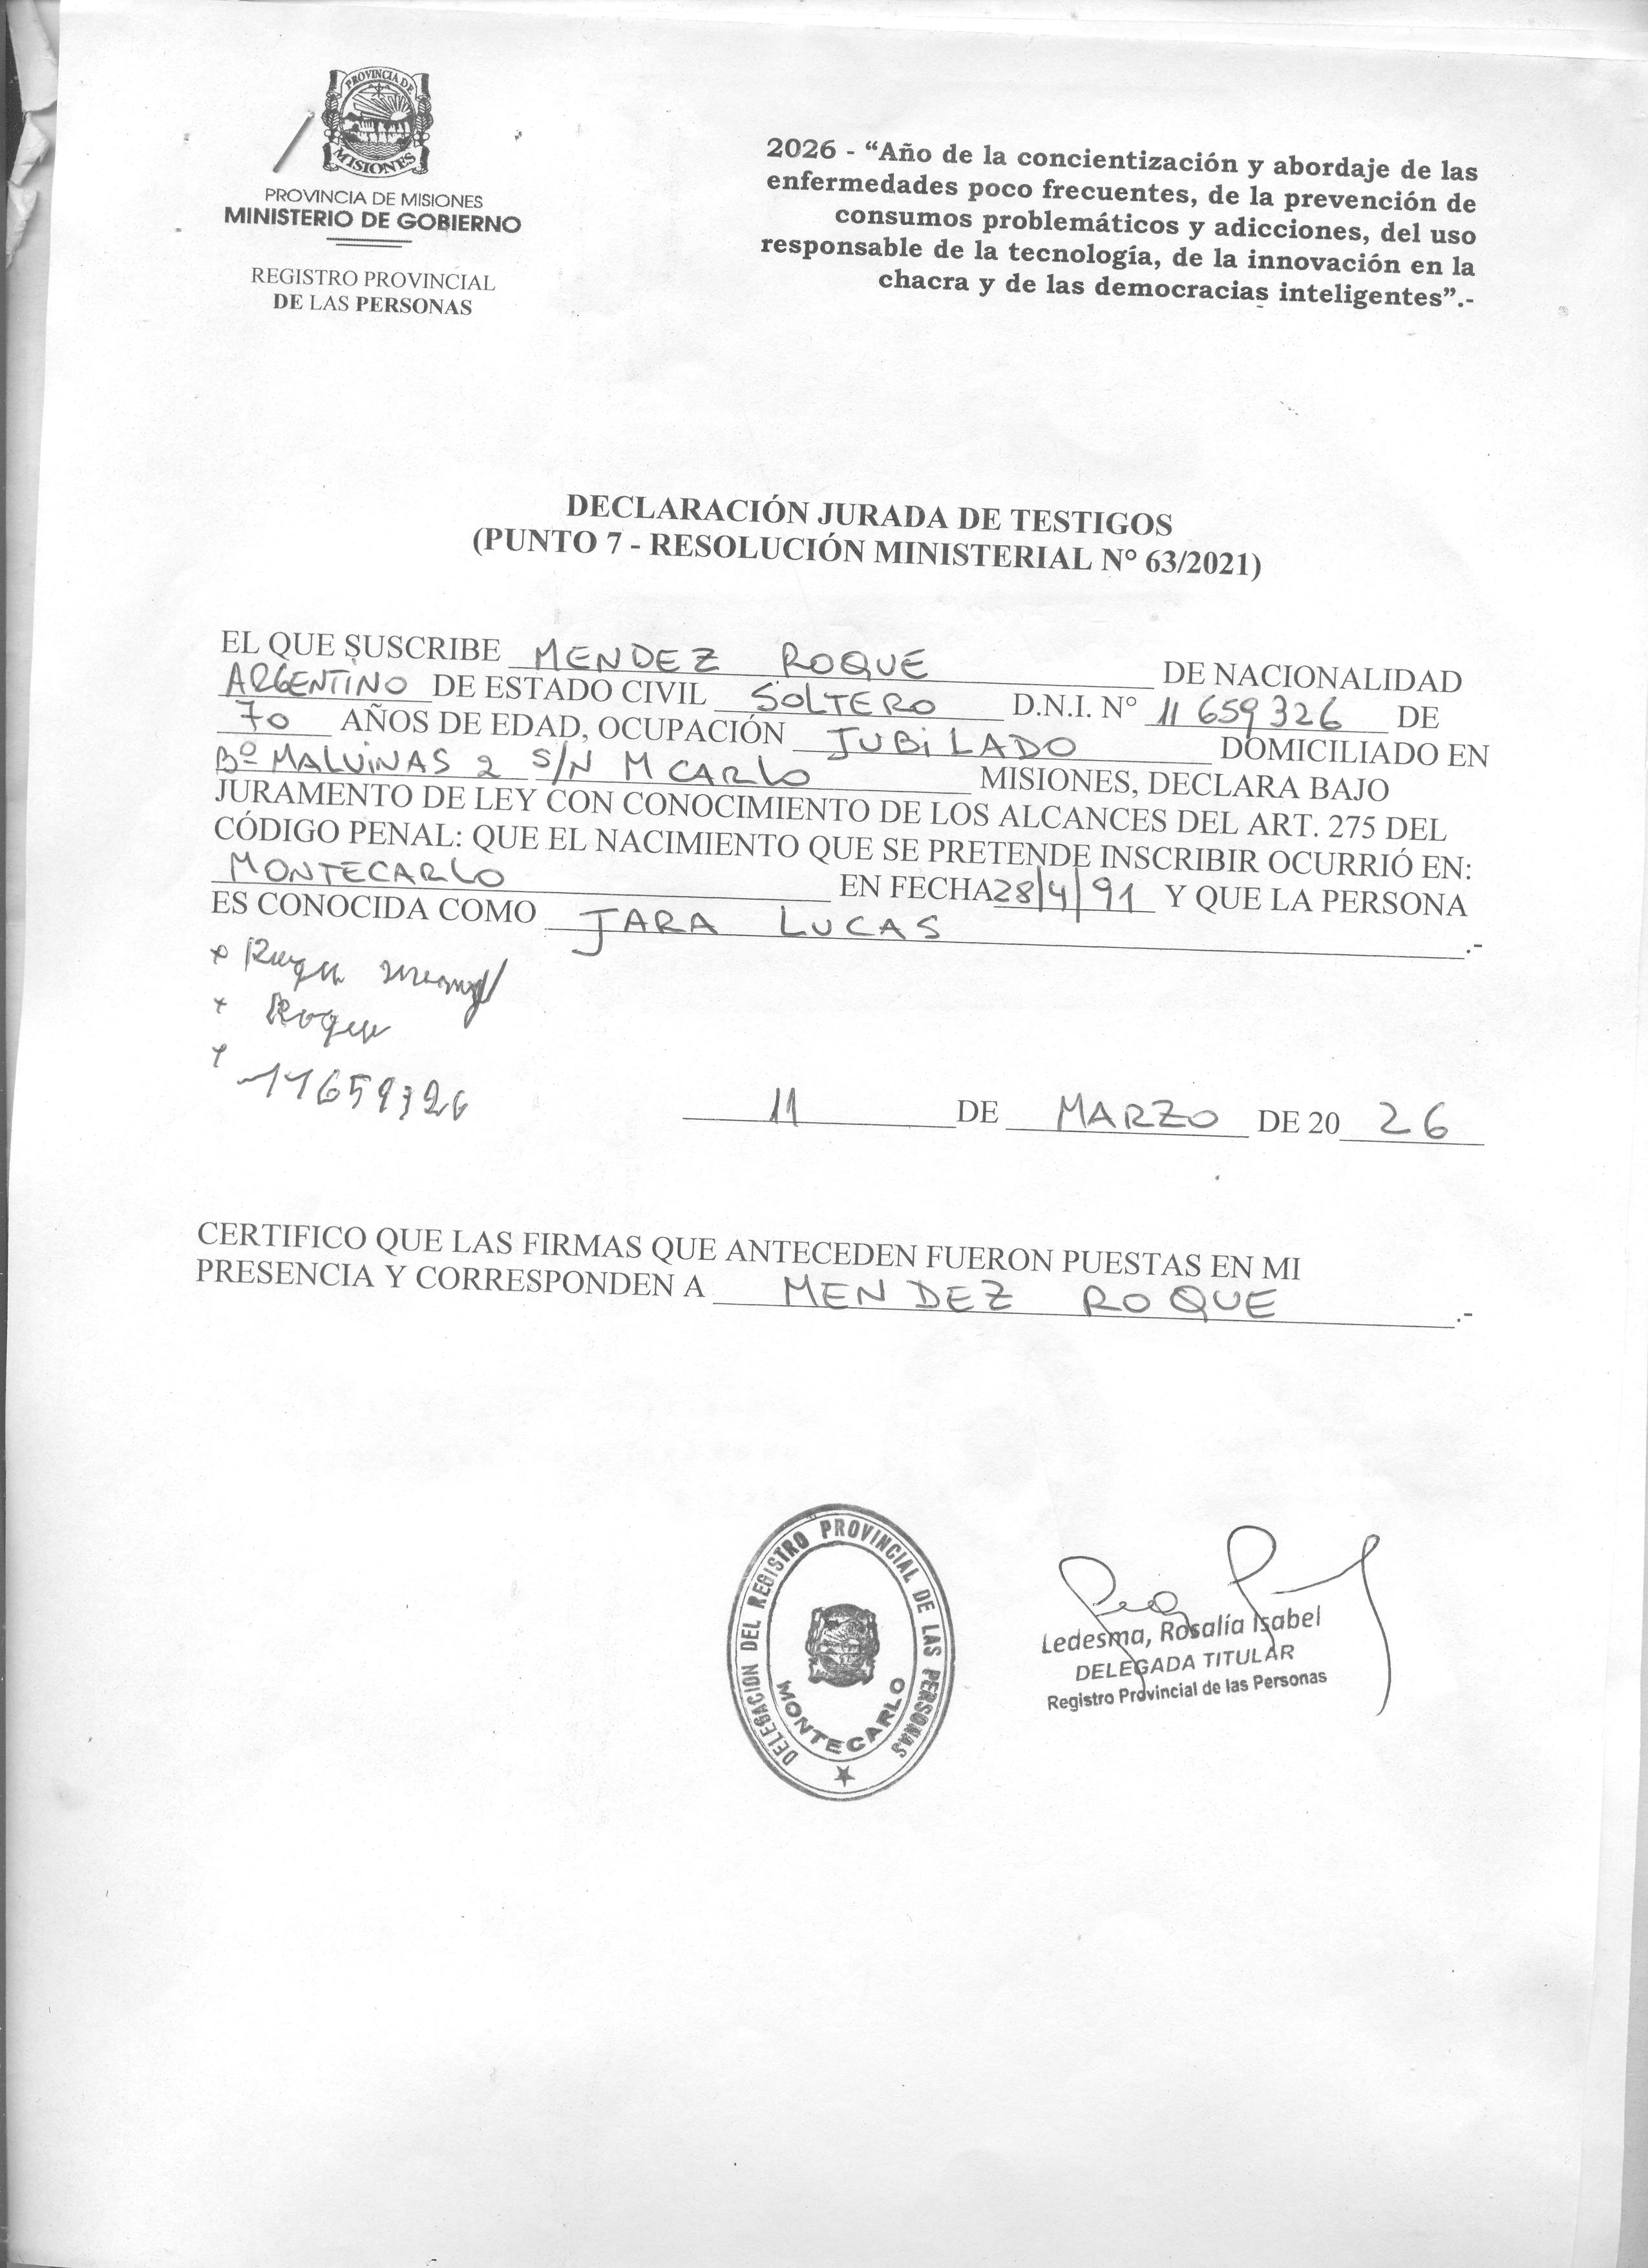 PROVINCIA DE
MISIONES
PROVINCIA DE MISIONES
MINISTERIO DE GOBIERNO
REGISTRO PROVINCIAL
DE LAS PERSONAS
2026 - “Año de la concientización y abordaje de las
enfermedades poco frecuentes, de la prevención de
consumos problemáticos y adicciones, del uso
responsable de la tecnología, de la innovación en la
chacra y de las democracias inteligentes”.-
DECLARACIÓN JURADA DE TESTIGOS
(PUNTO 7 - RESOLUCIÓN MINISTERIAL N° 63/2021)
EL QUE SUSCRIBE MENDEZ ROQUE DE NACIONALIDAD
ARGENTINO DE ESTADO CIVIL SOLTERO D.N.I. N° 11 659 326 DE
70 AÑOS DE EDAD, OCUPACIÓN JUBILADO DOMICILIADO EN
Bº MALVINAS 2 S/N M CARLO MISIONES, DECLARA BAJO
JURAMENTO DE LEY CON CONOCIMIENTO DE LOS ALCANCES DEL ART. 275 DEL
CÓDIGO PENAL: QUE EL NACIMIENTO QUE SE PRETENDE INSCRIBIR OCURRIÓ EN:
MONTECARLO EN FECHA 28/4/91 Y QUE LA PERSONA
ES CONOCIDA COMO JARA LUCAS .-
+ Roque
+ 11659326
11 DE MARZO DE 20 26
CERTIFICO QUE LAS FIRMAS QUE ANTECEDEN FUERON PUESTAS EN MI
PRESENCIA Y CORRESPONDEN A MENDEZ ROQUE .-
DELEGACION DEL REGISTRO PROVINCIAL DE LAS PERSONAS
MONTECARLO
Ledesma, Rosalía Isabel
DELEGADA TITULAR
Registro Provincial de las Personas